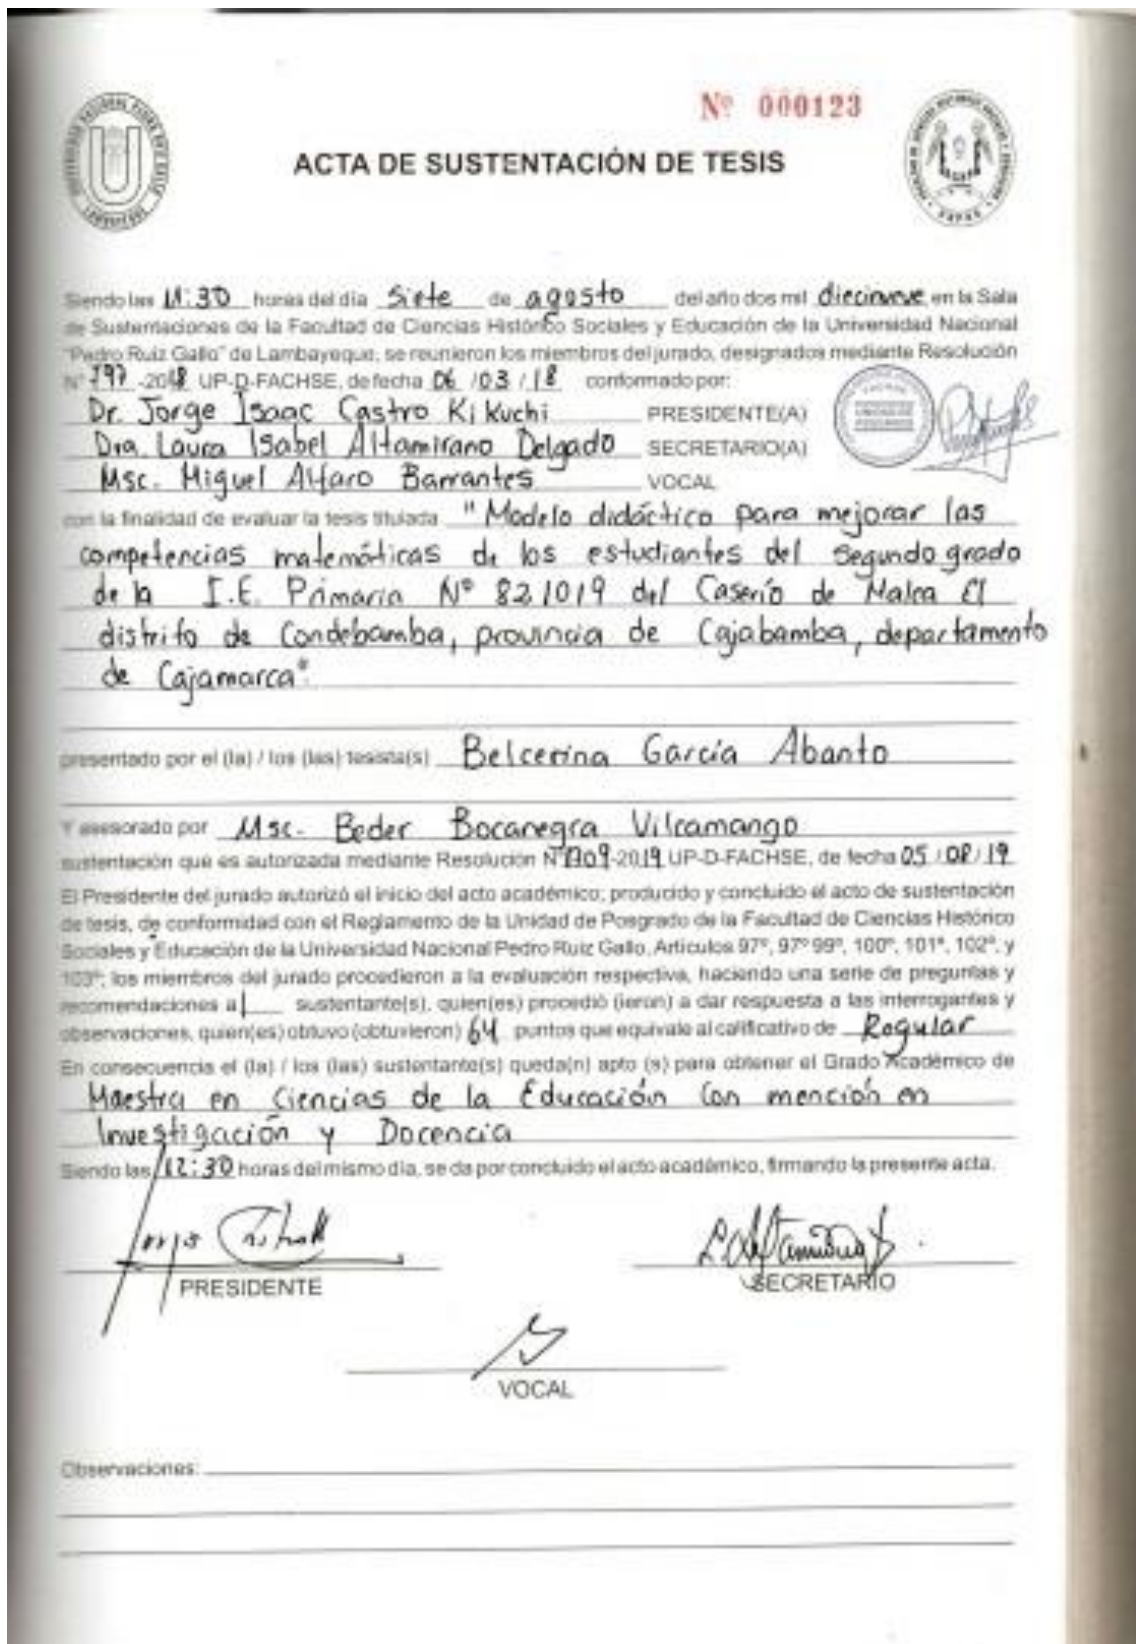 Nº 000123
ACTA DE SUSTENTACIÓN DE TESIS
Siendo las 11:30 horas del día Siete de agosto del año dos mil diecinueve en la Sala
de Sustentaciones de la Facultad de Ciencias Histórico Sociales y Educación de la Universidad Nacional
"Pedro Ruiz Gallo" de Lambayeque, se reunieron los miembros del jurado, designados mediante Resolución
N° 797 -2018 UP-D-FACHSE, de fecha 06 /03 /18 conformado por:
Dr. Jorge Isaac Castro Kikuchi PRESIDENTE(A)
Dra. Laura Isabel Altamirano Delgado SECRETARIO(A)
Msc. Miguel Alfaro Barrantes VOCAL
con la finalidad de evaluar la tesis titulada "Modelo didáctico para mejorar las
competencias matemáticas de los estudiantes del Segundo grado
de la I.E. Primaria Nº 821019 del Caserío de Malca El
distrito de Condebamba, provincia de Cajabamba, departamento
de Cajamarca".
presentado por el (la) / los (las) tesista(s) Belcerina García Abanto
Y asesorado por Msc. Beder Bocanegra Vilcamango
sustentación que es autorizada mediante Resolución N° 1709-2019 UP-D-FACHSE, de fecha 05 / 08 / 19
El Presidente del jurado autorizó el inicio del acto académico; producido y concluido el acto de sustentación
de tesis, de conformidad con el Reglamento de la Unidad de Posgrado de la Facultad de Ciencias Histórico
Sociales y Educación de la Universidad Nacional Pedro Ruiz Gallo, Artículos 97º, 97º 99º, 100º, 101º, 102º, y
103º; los miembros del jurado procedieron a la evaluación respectiva, haciendo una serie de preguntas y
recomendaciones al sustentante(s), quien(es) procedió (ieron) a dar respuesta a las interrogantes y
observaciones, quien(es) obtuvo (obtuvieron) 64 puntos que equivale al calificativo de Regular
En consecuencia el (la) / los (las) sustentante(s) queda(n) apto (s) para obtener el Grado Académico de
Maestra en Ciencias de la Educación Con mención en
Investigación y Docencia
Siendo las 12:30 horas del mismo día, se da por concluido el acto académico, firmando la presente acta.
PRESIDENTE
SECRETARIO
VOCAL
Observaciones: